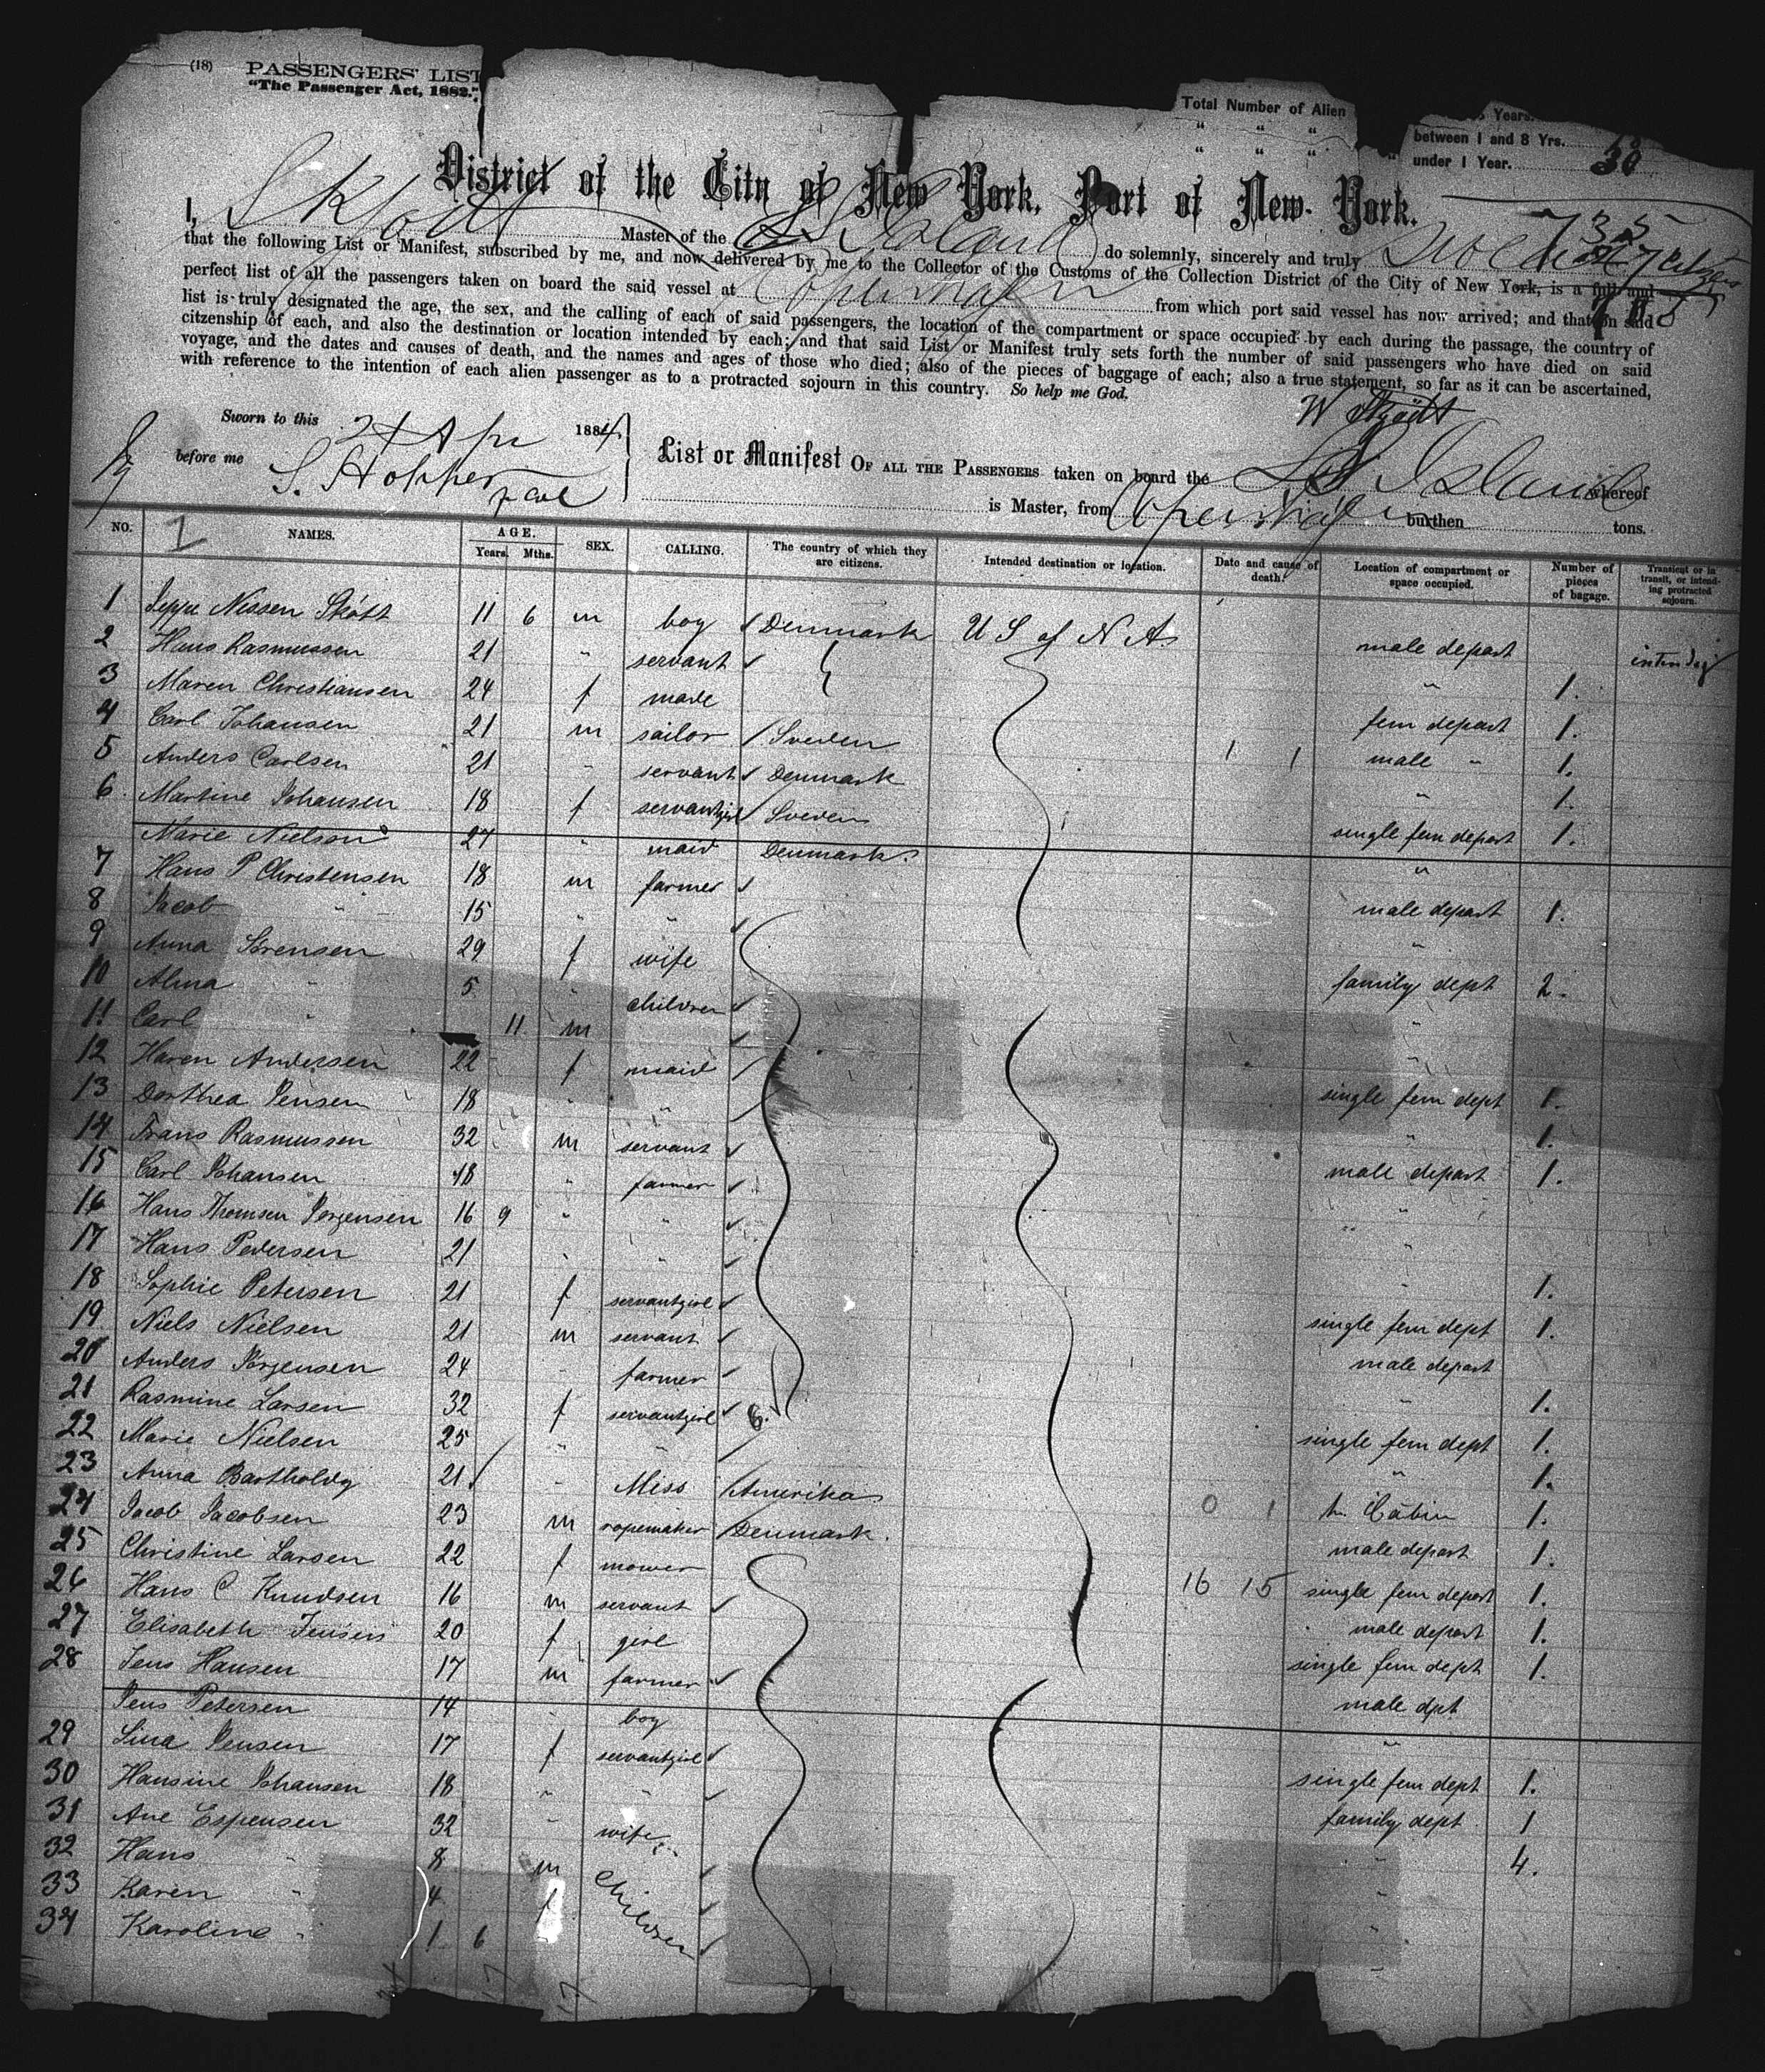 (18) PASSENGERS' LIST
"The Passenger Act, 1882."
Total Number of Alien
" " " Years.
" " " between 1 and 8 Yrs.
" under 1 Year. 30
District of the City of New York, Port of New-York.
735
I, Skjodt Master of the SS Island do solemnly, sincerely and truly
that the following List or Manifest, subscribed by me, and now delivered by me to the Collector of the Customs of the Collection District of the City of New York, is a full and
perfect list of all the passengers taken on board the said vessel at Copenhagen from which port said vessel has now arrived; and that on said
list is truly designated the age, the sex, and the calling of each of said passengers, the location of the compartment or space occupied by each during the passage, the country of
citzenship of each, and also the destination or location intended by each; and that said List or Manifest truly sets forth the number of said passengers who have died on said
voyage, and the dates and causes of death, and the names and ages of those who died; also of the pieces of baggage of each; also a true statement, so far as it can be ascertained,
with reference to the intention of each alien passenger as to a protracted sojourn in this country. So help me God.
W Skjödt
Sworn to this 24 Apr 1884
before me S. Hopper
List or Manifest OF ALL THE PASSENGERS taken on board the SS Island whereof
is Master, from Copenhagen burthen tons.
NO. NAMES. AGE. Years. Mths. SEX. CALLING. The country of which they are citizens. Intended destination or location. Date and cause of death. Location of compartment or space occupied. Number of pieces of bagage. Transient or in transit, or intending protracted sojourn.
1
1 Jeppe Nissen Skött 11 6 m boy Denmark U S of N A. male depart
2 Hans Rasmussen 21 " servant " 1.
3 Maren Christiansen 24 f made fem depart 1.
4 Carl Johansen 21 m sailor Sveden 1 1 male " 1.
5 Anders Carlsen 21 " servant Denmark " 1.
6 Martine Johansen 18 f servantgirl Sveden single fem depart 1.
Marie Nielson 27 " maid Denmark "
7 Hans P Christensen 18 m farmer male depart 1.
8 Jacob " 15 " " "
9 Anna Sörensen 29 f wife family dept 2.
10 Alma " 5 " children "
11 Carl " 11 m "
12 Karen Andersen 22 f maid single fem dept 1.
13 Dorthea Jensen 18 " " " 1.
14 Frans Rasmussen 32 m servant male depart 1.
15 Carl Johansen 18 " farmer "
16 Hans Thomsen Jörgensen 16 9 " " "
17 Hans Pedersen 21 " " " 1.
18 Sophie Petersen 21 f servantgirl single fem dept 1.
19 Niels Nielsen 21 m servant male depart
20 Anders Jörgensen 24 " farmer " 1.
21 Rasmine Larsen 32 f servantgirl single fem dept 1.
22 Marie Nielsen 25 " " " 1.
23 Anna Bartholdy 21 " Miss Amerika 0 1 Cabin 1.
24 Jacob Jacobsen 23 m ropemaker Denmark. male depart 1.
25 Christine Larsen 22 f mower 16 15 single fem depart 1.
26 Hans C Knudsen 16 m servant male depart 1.
27 Elisabeth Jensen 20 f girl single fem dept 1.
28 Jens Hansen 17 m farmer male dpt
Jens Petersen 14 " boy "
29 Sina Jensen 17 f servantgirl single fem dept 1.
30 Hansine Johansen 18 " " family dept 1
31 Ane Espensen 32 " wife " 4.
32 Hans " 8 m Children "
33 Karen " 4 f "
34 Karoline " 1 6
17 17